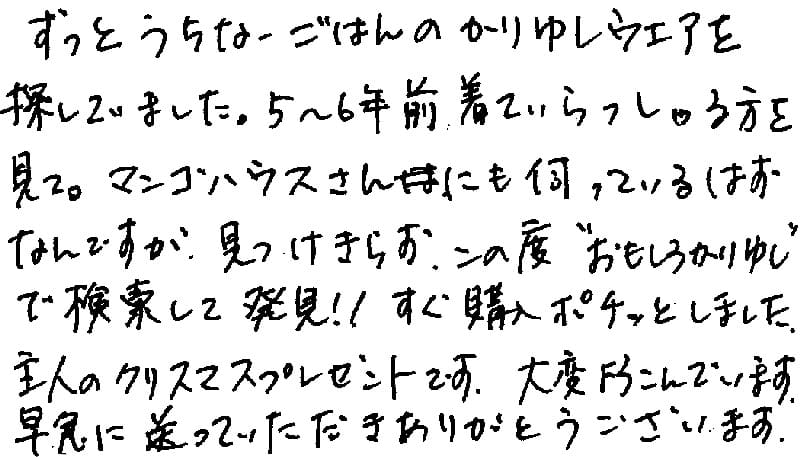 ずっとうちなーごはんのかりゆしウェアを
探していました。5〜6年前着ていらっしゃる方を
見て。マンゴハウスさんにも伺っているはず
なんですが、見つけきらず、この度"おもしろかりゆし"
で検索して発見!! すぐ購入ポチッとしました。
主人のクリスマスプレゼントです。大変よろこんでいます。
早急に送っていただきありがとうございます。